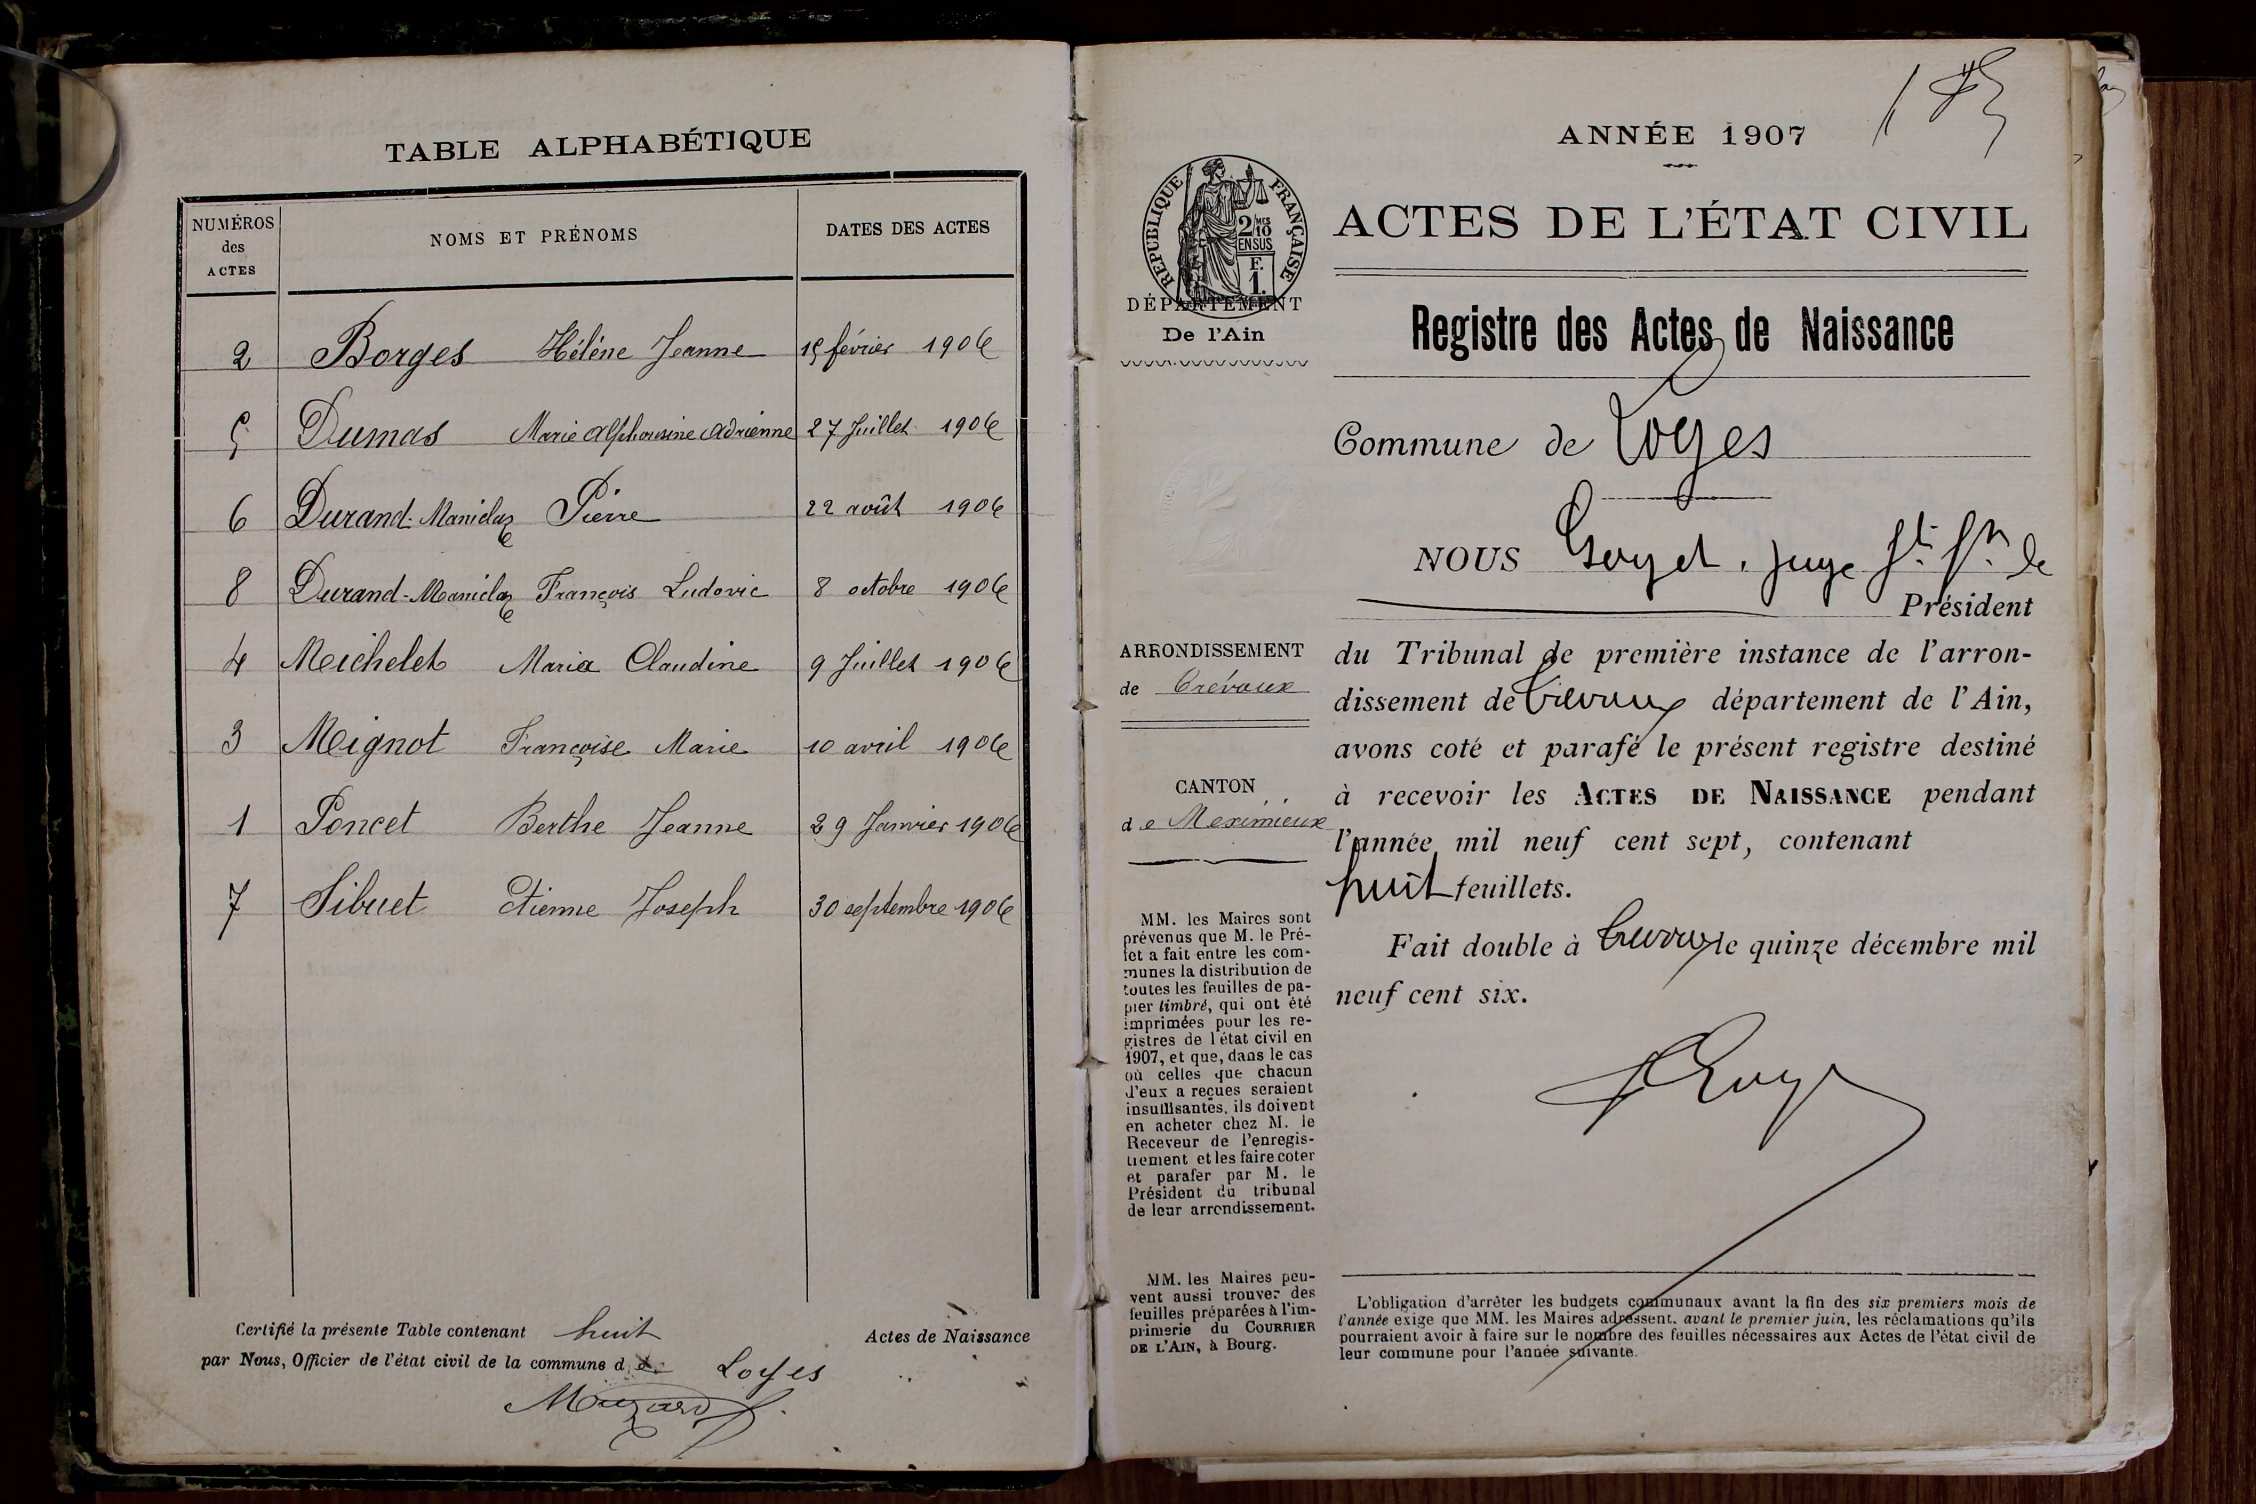 TABLE ALPHABÉTIQUE
NUMÉROS des ACTES NOMS ET PRÉNOMS DATES DES ACTES
2 Borges Hélène Jeanne 15 février 1906
5 Dumas Marie Alphonsine Adrienne 27 Juillet 1906
6 Durand-Maniclaz Pierre 22 août 1906
8 Durand-Maniclaz François Ludovic 8 octobre 1906
4 Michelet Maria Claudine 9 Juillet 1906
3 Mignot Françoise Marie 10 avril 1906
1 Poncet Berthe Jeanne 29 Janvier 1906
7 Sibuet Etienne Joseph 30 septembre 1906
Certifié la présente Table contenant huit Actes de Naissance
par Nous, Officier de l'état civil de la commune d de Loyes
ANNÉE 1907
RÉPUBLIQUE FRANÇAISE
2/10 MES
EN SUS
F.
1.
DÉPARTEMENT
De l'Ain
ACTES DE L'ÉTAT CIVIL
Registre des Actes de Naissance
Commune de Loyes
NOUS Goyet, juge
Président
du Tribunal de première instance de l'arron-
dissement de Trévoux département de l'Ain,
avons coté et parafé le présent registre destiné
à recevoir les ACTES DE NAISSANCE pendant
l'année mil neuf cent sept, contenant
huit feuillets.
Fait double à Trévoux le quinze décembre mil
neuf cent six.
ARRONDISSEMENT
de Trévoux
CANTON
de Meximieux
MM. les Maires sont
prévenus que M. le Pré-
fet a fait entre les com-
munes la distribution de
toutes les feuilles de pa-
pier timbré, qui ont été
imprimées pour les re-
gistres de l'état civil en
1907, et que, dans le cas
où celles que chacun
d'eux a reçues seraient
insuffisantes, ils doivent
en acheter chez M. le
Receveur de l'enregis-
trement et les faire coter
et parafer par M. le
Président du tribunal
de leur arrondissement.
MM. les Maires peu-
vent aussi trouver des
feuilles préparées à l'im-
primerie du COURRIER
DE L'AIN, à Bourg.
L'obligation d'arrêter les budgets communaux avant la fin des six premiers mois de
l'année exige que MM. les Maires adressent, avant le premier juin, les réclamations qu'ils
pourraient avoir à faire sur le nombre des feuilles nécessaires aux Actes de l'état civil de
leur commune pour l'année suivante.